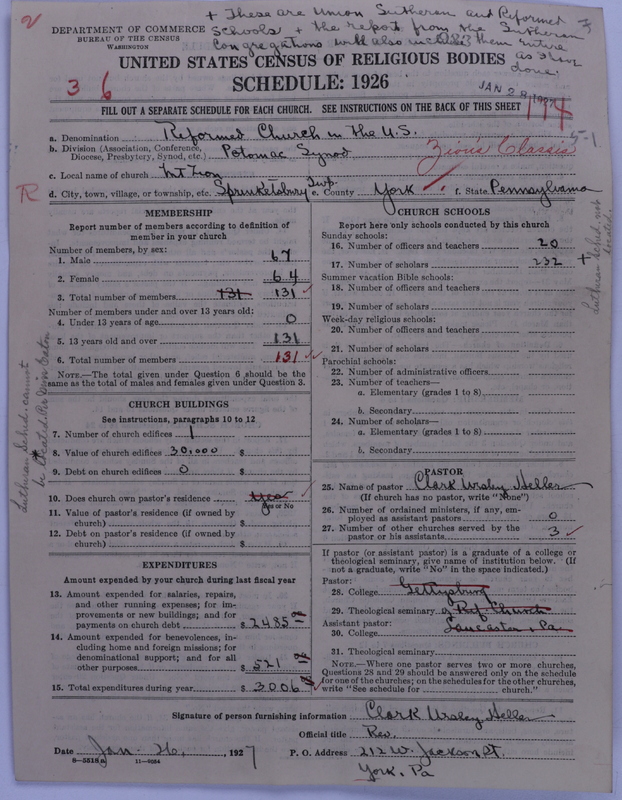 2
+ These are Union Lutheran and Reformed
Schools + the report from the Lutheran
Congregations will also include them entire
as I have
done.
DEPARTMENT OF COMMERCE
BUREAU OF THE CENSUS
WASHINGTON
UNITED STATES CENSUS OF RELIGIOUS BODIES
SCHEDULE: 1926
3 6
JAN 28 1927
174
FILL OUT A SEPARATE SCHEDULE FOR EACH CHURCH. SEE INSTRUCTIONS ON THE BACK OF THIS SHEET
5-1
a. Denomination Reformed Church in the U.S.
b. Division (Association, Conference, Diocese, Presbytery, Synod, etc.) Potomac Synod
Zion's Classis
c. Local name of church Mt Zion
R
d. City, town, village, or township, etc. Sprinketsbury Twp. e. County York f. State Pennsylvania
MEMBERSHIP
Report number of members according to definition of
member in your church
Number of members, by sex:
1. Male 67
2. Female 64
3. Total number of members 131 131
Number of members under and over 13 years old:
4. Under 13 years of age 0
5. 13 years old and over 131
6. Total number of members 131
NOTE.—The total given under Question 6 should be the
same as the total of males and females given under Question 3.
CHURCH BUILDINGS
See instructions, paragraphs 10 to 12
7. Number of church edifices 1
8. Value of church edifices 30,000 $
9. Debt on church edifices 0 $
10. Does church own pastor's residence Yes
Yes or No
11. Value of pastor's residence (if owned by
church) $
12. Debt on pastor's residence (if owned by
church) $
EXPENDITURES
Amount expended by your church during last fiscal year
13. Amount expended for salaries, repairs,
and other running expenses; for im-
provements or new buildings; and for
payments on church debt $ 2485 00
14. Amount expended for benevolences, in-
cluding home and foreign missions; for
denominational support; and for all
other purposes $ 521 00
15. Total expenditures during year $ 3006
Lutheran Sched. cannot
be located.
CHURCH SCHOOLS
Report here only schools conducted by this church
Sunday schools:
16. Number of officers and teachers 20
17. Number of scholars 232 +
Summer vacation Bible schools:
18. Number of officers and teachers
19. Number of scholars
Week-day religious schools:
20. Number of officers and teachers
21. Number of scholars
Parochial schools:
22. Number of administrative officers
23. Number of teachers—
a. Elementary (grades 1 to 8)
b. Secondary
24. Number of scholars—
a. Elementary (grades 1 to 8)
b. Secondary
Lutheran Sched. not
located.
PASTOR
25. Name of pastor Clark Wesley Heller
(If church has no pastor, write "None")
26. Number of ordained ministers, if any, em-
ployed as assistant pastors 0
27. Number of other churches served by the
pastor or his assistants 3
If pastor (or assistant pastor) is a graduate of a college or
theological seminary, give name of institution below. (If
not a graduate, write "No" in the space indicated.)
Pastor:
28. College Gettysburg
29. Theological seminary Ref Church
Assistant pastor: Lancaster, Pa
30. College
31. Theological seminary
NOTE.—Where one pastor serves two or more churches,
Questions 28 and 29 should be answered only on the schedule
for one of the churches; on the schedules for the other churches,
write "See schedule for church."
Signature of person furnishing information Clark Wesley Heller
Official title Rev.
Date Jan. 26, 1927 P. O. Address 212 W. Jackson St.
8—5518a 11—9064
York, Pa